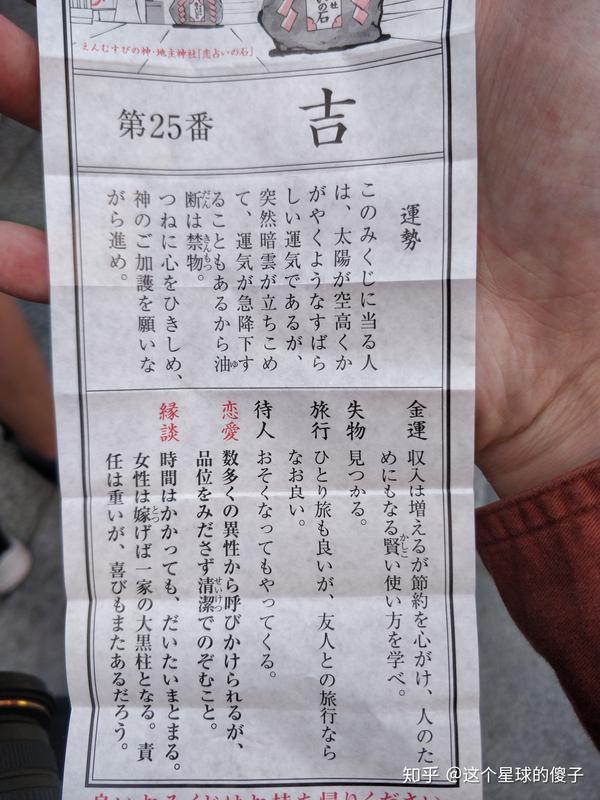 えんむすびの神・地主神社「恋占いの石」
第25番
吉
運勢
このみくじに当る人
は、太陽が空高くか
がやくようなすばら
しい運気であるが、
突然暗雲が立ちこめ
て、運気が急降下す
ることもあるから油
断は禁物。
つねに心をひきしめ、
神のご加護を願いな
がら進め。
金運 収入は増えるが節約を心がけ、人のた
めにもなる賢い使い方を学べ。
失物 見つかる。
旅行 ひとり旅も良いが、友人との旅行なら
なお良い。
待人 おそくなってもやってくる。
恋愛 数多くの異性から呼びかけられるが、
品位をみださず清潔でのぞむこと。
縁談 時間はかかっても、だいたいまとまる。
女性は嫁げば一家の大黒柱となる。責
任は重いが、喜びもまたあるだろう。
知乎 @这个星球的傻子